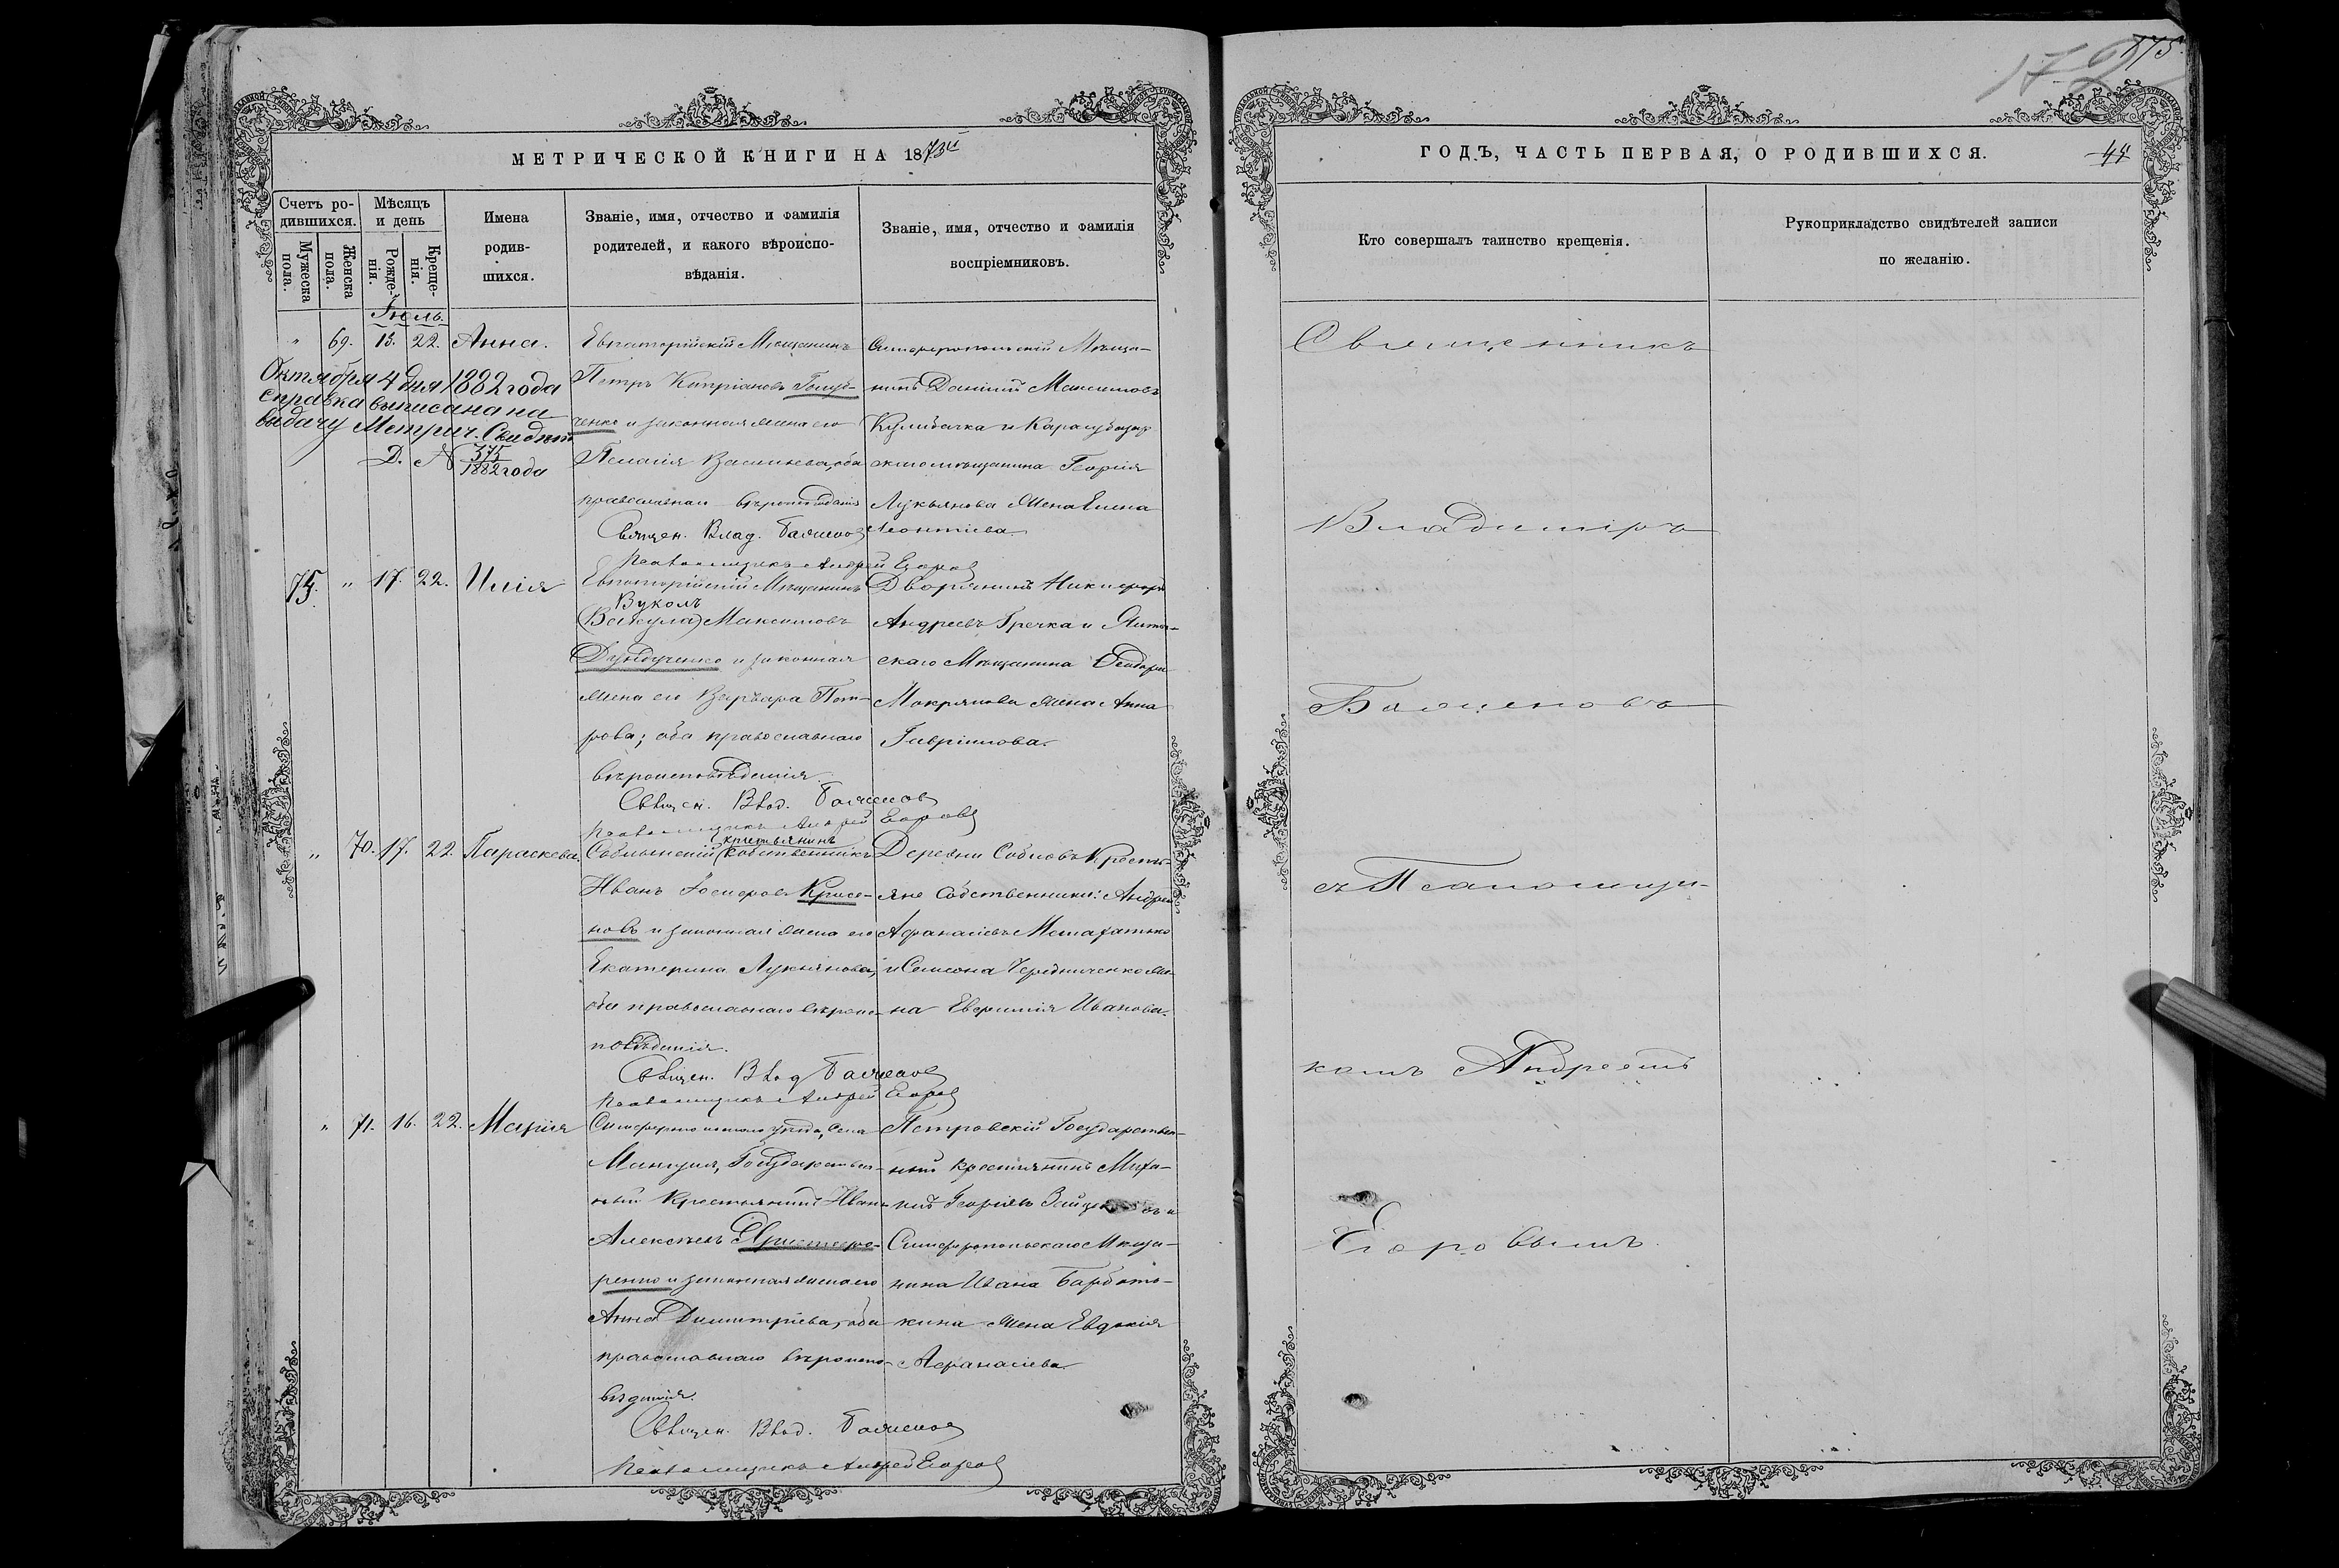 175
МЕТРИЧЕСКОЙ КНИГИ НА 1873й
ГОДЪ, ЧАСТЬ ПЕРВАЯ, О РОДИВШИХСЯ.
44
Счетъ ро-
дившихся.
Мужеска
пола.
Женска
пола.
Мѣсяцъ
и день
Рожде-
нія.
Креще-
нія.
Имена
родив-
шихся.
Званіе, имя, отчество и фамилія
родителей, и какого вѣроиспо-
вѣданія.
Званіе, имя, отчество и фамилія
воспріемниковъ.
Кто совершалъ таинство крещенія.
Рукоприкладство свидѣтелей записи
по желанію.
Іюль.
" 69. 13. 22. Анна.
Евпаторійскій Мѣщанинъ
Петръ Кипріановъ
ченко и законная жена его
Пелагія Васильева, оба
православнаго вѣроисповѣданія
Священ. Влад. Баженов
Псаломщикъ Андрей Егоров
Симферопольскій Мѣща-
нинъ Даніилъ Максимовъ
Кулибачка и Карасубазар
скаго мѣщанина Георгія
Лукьянова жена Елена
Леонтіева.
Октября 4 дня 1882 года
справка выписана на
выдачу Метрич. Свидѣт
Д. № 375
1882 года
75. " 17. 22. Илія
Евпаторійскій Мѣщанинъ
Вуколъ
(Вакула) Максимовъ
Дундученко и законная
жена его Варвара Пет-
рова; оба православнаго
вѣроисповѣданія.
Священ. Влад. Баженов
Псаломщикъ Андрей Егоров
Дворянинъ Никифоръ
Андреевъ Гречка и Ялтин-
скаго Мѣщанина
Мокрякова жена Анна
Гавріилова.
" 70. 17. 22. Параскева
Саблынскій крестьянинъ собственникъ
Иванъ
новъ и законная жена его
Екатерина Лукьянова,
оба православнаго вѣроис-
повѣданія.
Священ. Влад Баженов
Псаломщикъ Андрей Егоров
Деревни Сабловъ Кресть-
яне Собственники: Андрей
Афанасіевъ
и Симеона Чередниченко же-
на Евфимія Иванова.
" 71. 16. 22. Марія
Симферопольскаго уѣзда, села
Мангушъ, Государствен-
ный Крестьянинъ Иванъ
Алексѣевъ Христофо-
ренко и законная жена его
Анна Димитріева, оба
православнаго вѣроиспо-
вѣданія.
Священ. Влад. Баженов
Псаломщикъ Андрей Егоров
Петровскій Государствен-
ный крестьянинъ Миха-
илъ Георгіевъ и
Симферопольскаго Мѣща-
нина Ивана Барбать-
кина жена Евдокія
Афанасіева.
Священникъ
Владиміръ
Баженовъ
съ Псаломщи-
комъ Андреемъ
Егоровымъ.